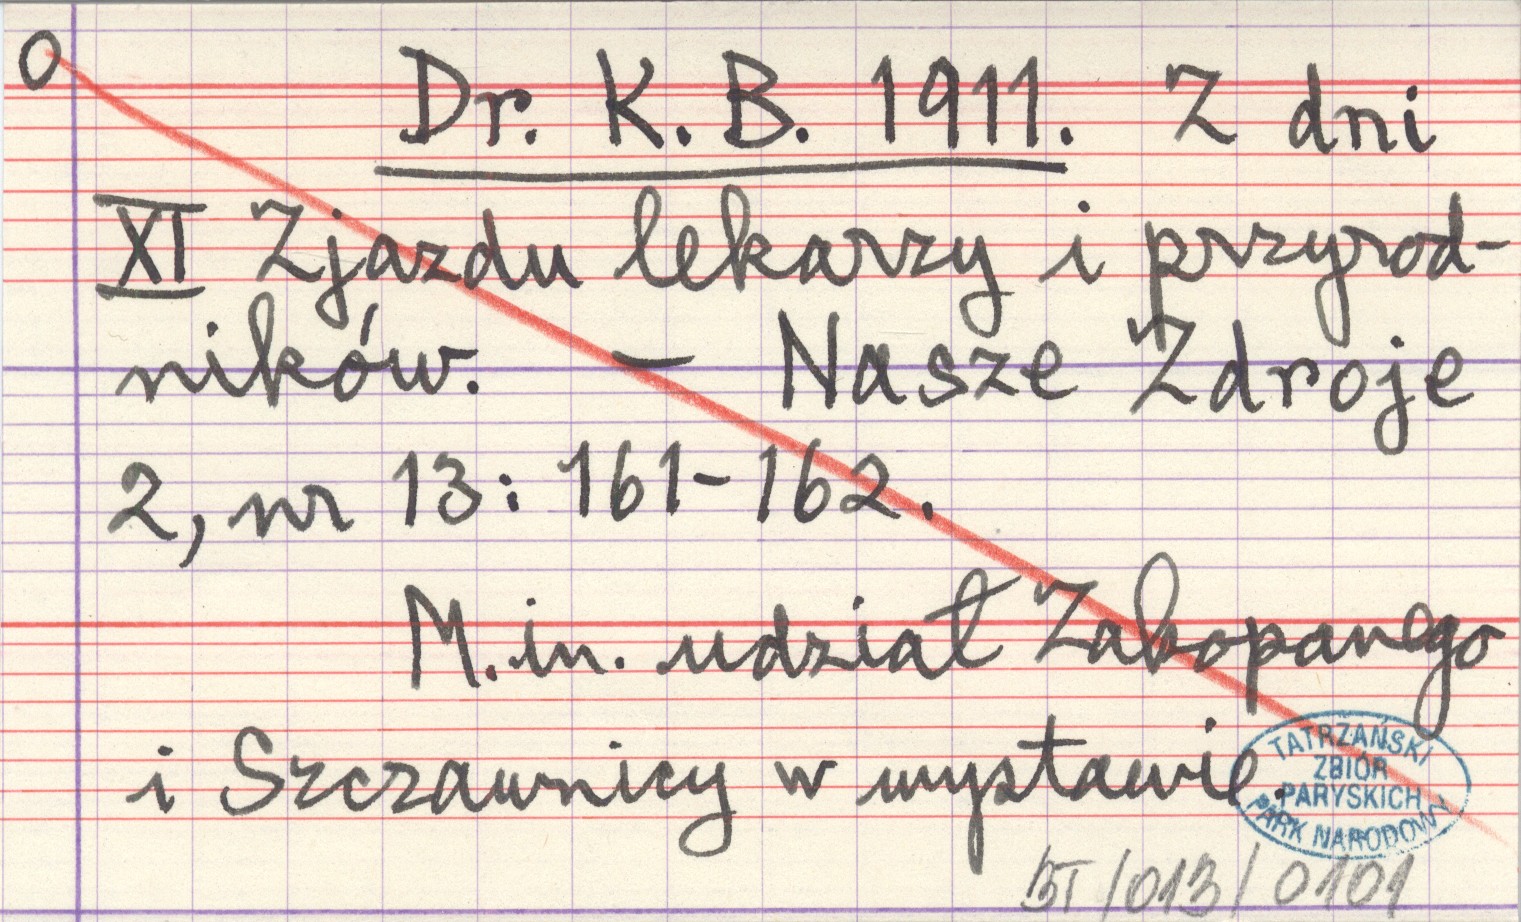 O
Dr. K. B. 1911. Z dni
XI Zjazdu lekarzy i przyrod-
ników. — Nasze Zdroje
2, nr 13: 161-162.
M. in. udział Zakopanego
i Szczawnicy w wystawie.
TATRZAŃSKI
ZBIÓR
PARYSKICH
PARK NARODOWY
BT/013/0101